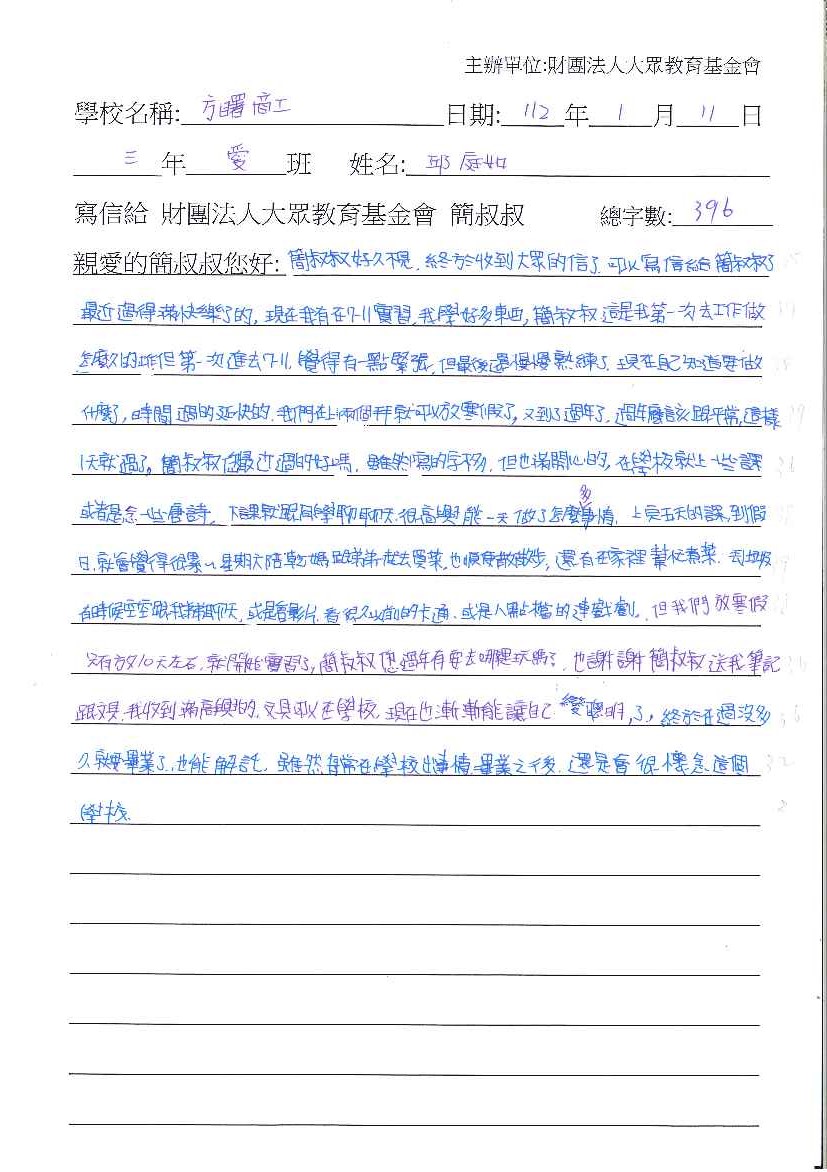 主辦單位:財團法人大眾教育基金會
學校名稱: 方曙商工 日期: 112 年 1 月 11 日
三 年 愛 班 姓名: 邱庭如
寫信給 財團法人大眾教育基金會 簡叔叔 總字數: 396
親愛的簡叔叔您好: 簡叔叔好久不見,終於收到大眾的信了,可以寫信給簡叔叔了
最近過得滿快樂的,現在我有在7-11實習,我學好多東西,簡叔叔這是我第一次去工作做
怎麼久的工作但第一次進去7-11,覺得有一點緊張,但最後還慢慢熟練了,現在自己知道要做
什麼了,時間過的延快的,我們在上兩個拜就可以放寒假了,又到了過年了,過年應該跟平常這樣
1天就過了。簡叔叔您最近過的好嗎,雖然寫的字多,但也滿開心的,在學校就上一些課
或者是念一些唐詩,下課就跟同學聊聊天,很高興能一天做了怎麼多事情,上完五天的課,到假
日,就會覺得很累,星期六陪乾媽跟弟弟一起去買菜,也順便散散步,還有在家裡幫忙煮菜、丟垃圾
有時候空空跟我妹聊天,或是看影片,看很久以前的卡通,或是八點檔的連戲劇,但我們放寒假
只有放10天左右,就開始實習了,簡叔叔您過年有要去哪裡玩嗎?也謝謝簡叔叔送我筆記
跟文具,我收到滿高興的,文具可以在學校,現在也漸漸能讓自己變聰明,了,終於在過沒多
久就要畢業了,也能解託,雖然有常在學校出事情,畢業之後,還是會很懷念這個
學校.